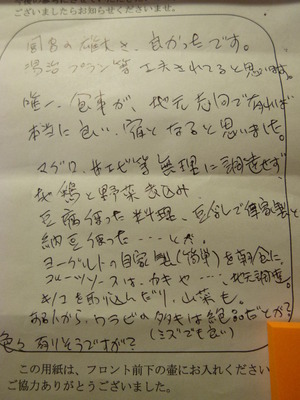 ございましたらお知らせくださいませ。
雄大さ、良かったです。
湯治プラン等 工夫されてると思います。
唯一、食事が、地元志向であれば
本当に良い宿となると思いました。
マグロ、甘エビ等 無理に調達せず
地鶏と野菜煮込み
豆腐使った料理、豆なしで自家製と
納豆使った…とか。
ヨーグルトの自家製(簡単)を朝食に
フルーツソースは、カキや…、地元調達。
キノコを取り込んだり、山菜も。
あるから、ワラビのタタキは絶品だとか?
(ミズでも良い)
色々有りそうですが?
この用紙は、フロント前下の壷にお入れください
ご協力ありがとうございました。